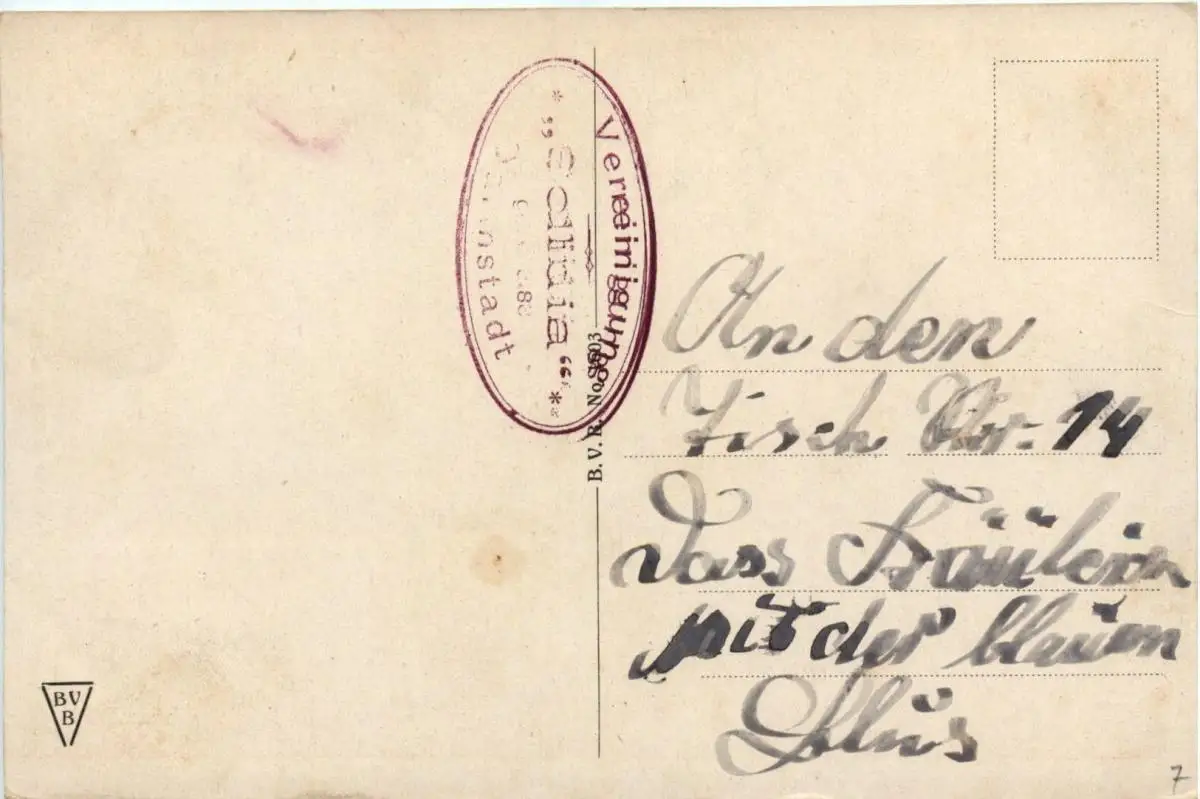 Vereinigung
* „Sedina" *
nstadt
B. V. B. No.
An den
Tisch Nr. 14
Dass Fräulein
mit der blauen
Blus
BV
B
7